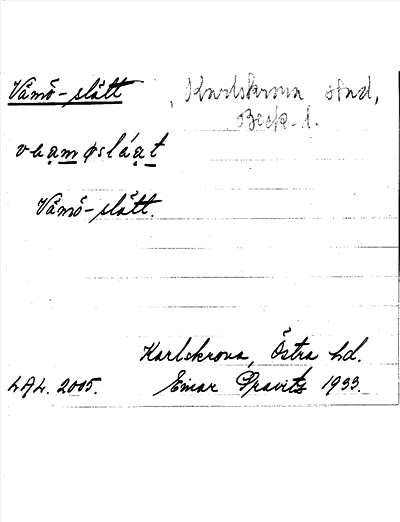 Vämö-slätt
Karlskrona stad,
Blek. l.
Vämö-slätt.
Karlskrona, Östra hd.
LAL. 2005.
Einar Pravitz 1933.